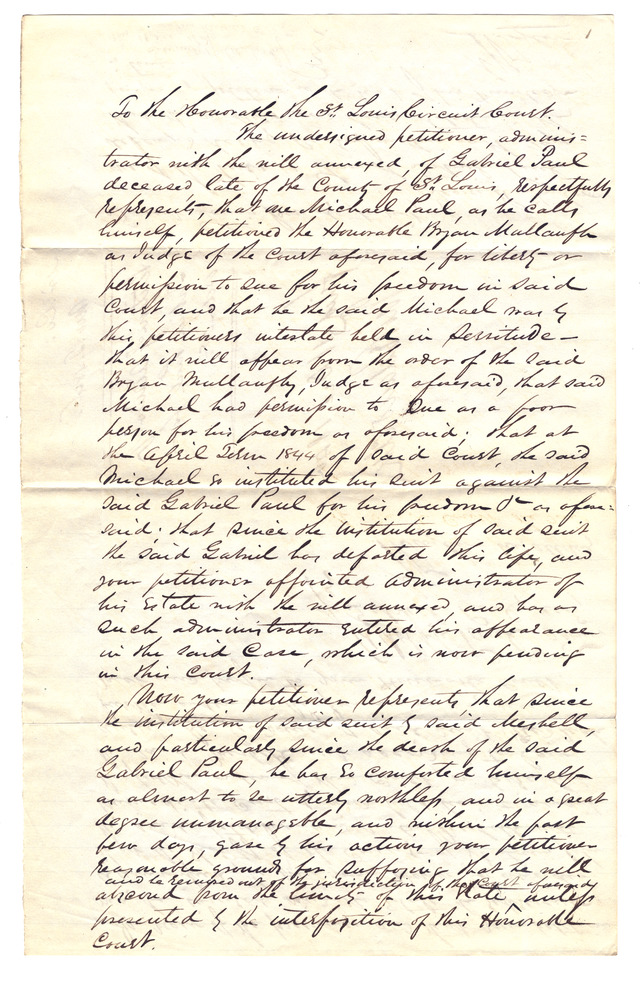 1
To the Honorable the St. Louis Circuit Court.
The undersigned petitioner, adminis=
trator with the will annexed, of Gabriel Paul
deceased late of the County of St. Louis, respectfully
represents, that one Michael Paul, as he calls
himself, petitioned the Honorable Bryan Mullanphy
as Judge of the Court aforesaid, for liberty or
permission to sue for his freedom in said
Court, and that he the said Michael was by
this petitioners intestate held in servitude—
that it will appear from the order of the said
Bryan Mullanphy, Judge as aforesaid, that said
Michael had permission to sue as a poor
person for his freedom as aforesaid; that at
the April Term 1844 of said Court, the said
Michael so instituted his suit against the
said Gabriel Paul for his freedom &c as afore=
said; that since the institution of said suit
the said Gabriel has departed this life, and
your petitioner appointed administrator of
his Estate with the will annexed, and has as
such administrator entered his appearance
in the said Case, which is now pending
in this Court.
Now your petitioner represents that since
the institution of said suit by said
and particularly since the death of the said
Gabriel Paul, he has so comported himself
as almost to be utterly worthless, and in a great
degree unmanageable, and within the past
few days, gave by his actions your petitioner
reasonable grounds for supposing that he will
and be removed out of the jurisdiction of the Court aforesaid
abscond from the limits of this State ^ unless
prevented by the interposition of this Honorable
Court.